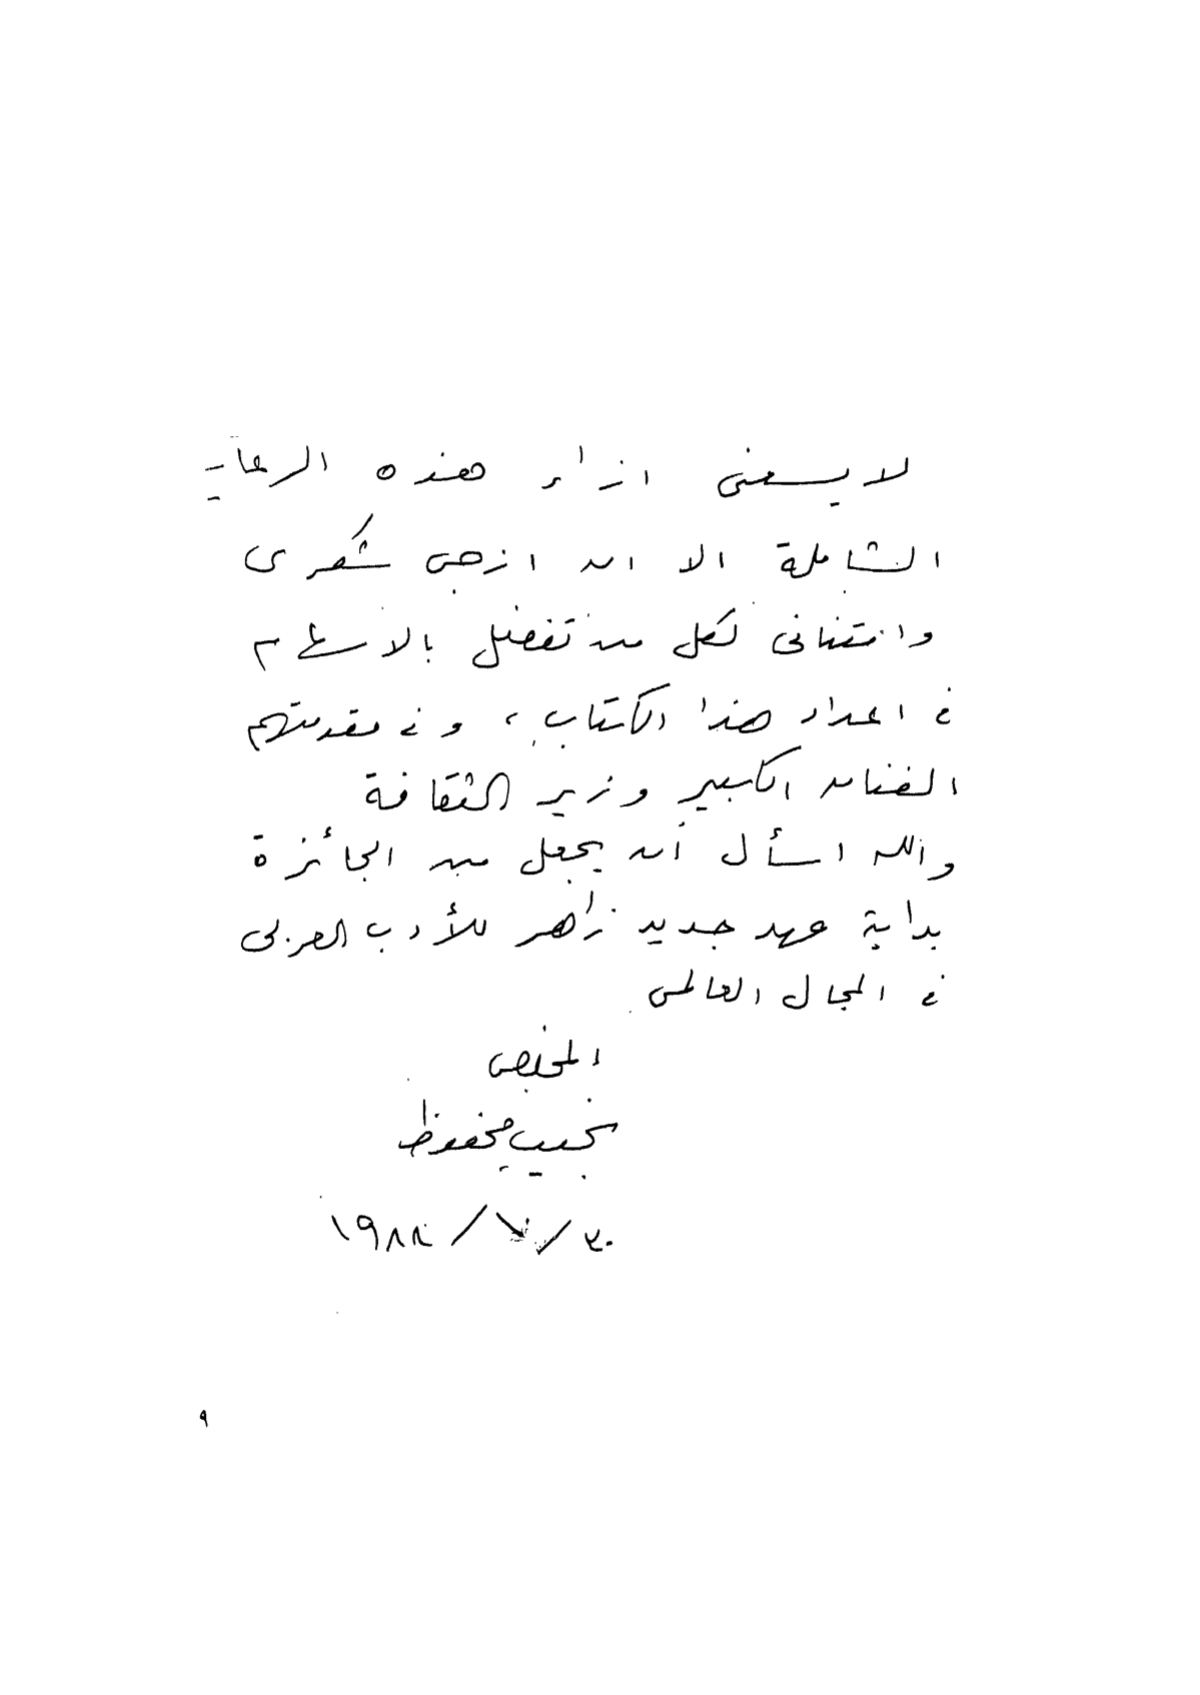 لا يسعنى ازاء هذه الرعاية
الشاملة الا ان ازجى شكرى
وامتنانى لكل من تفضل بالاسهام
فى اعداد هذا الكتاب، وفى مقدمتهم
الفنان الكبير وزير الثقافة
والله اسأل أن يجعل من الجائزة
بداية عهد جديد زاهر للأدب العربى
فى المجال العالمى
المخلص
نجيب محفوظ
١٩٨٨
٩